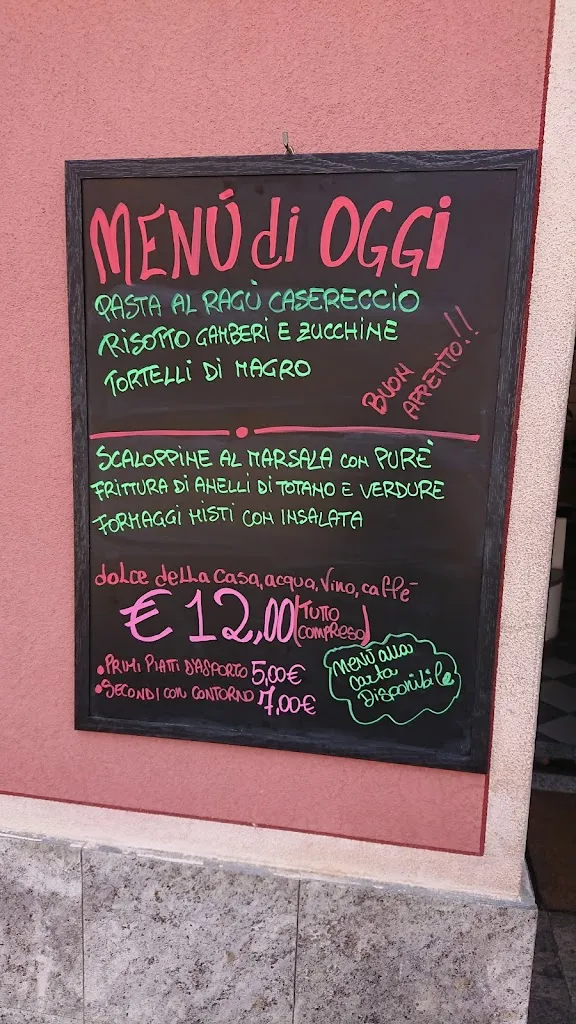 MENÚ di OGGI
PASTA AL RAGÙ CASERECCIO
RISOTTO GAMBERI E ZUCCHINE
TORTELLI DI MAGRO
BUON
APPETITO!!
SCALOPPINE AL MARSALA CON PURE'
FRITTURA DI ANELLI DI TOTANO E VERDURE
FORMAGGI MISTI CON INSALATA
dolce della casa, acqua, vino, caffè
€ 12,00 (TUTTO
COMPRESO)
•PRIMI PIATTI D'ASPORTO 5,00€
•SECONDI CON CONTORNO 7,00€
MENÙ alla
carta
Disponibile